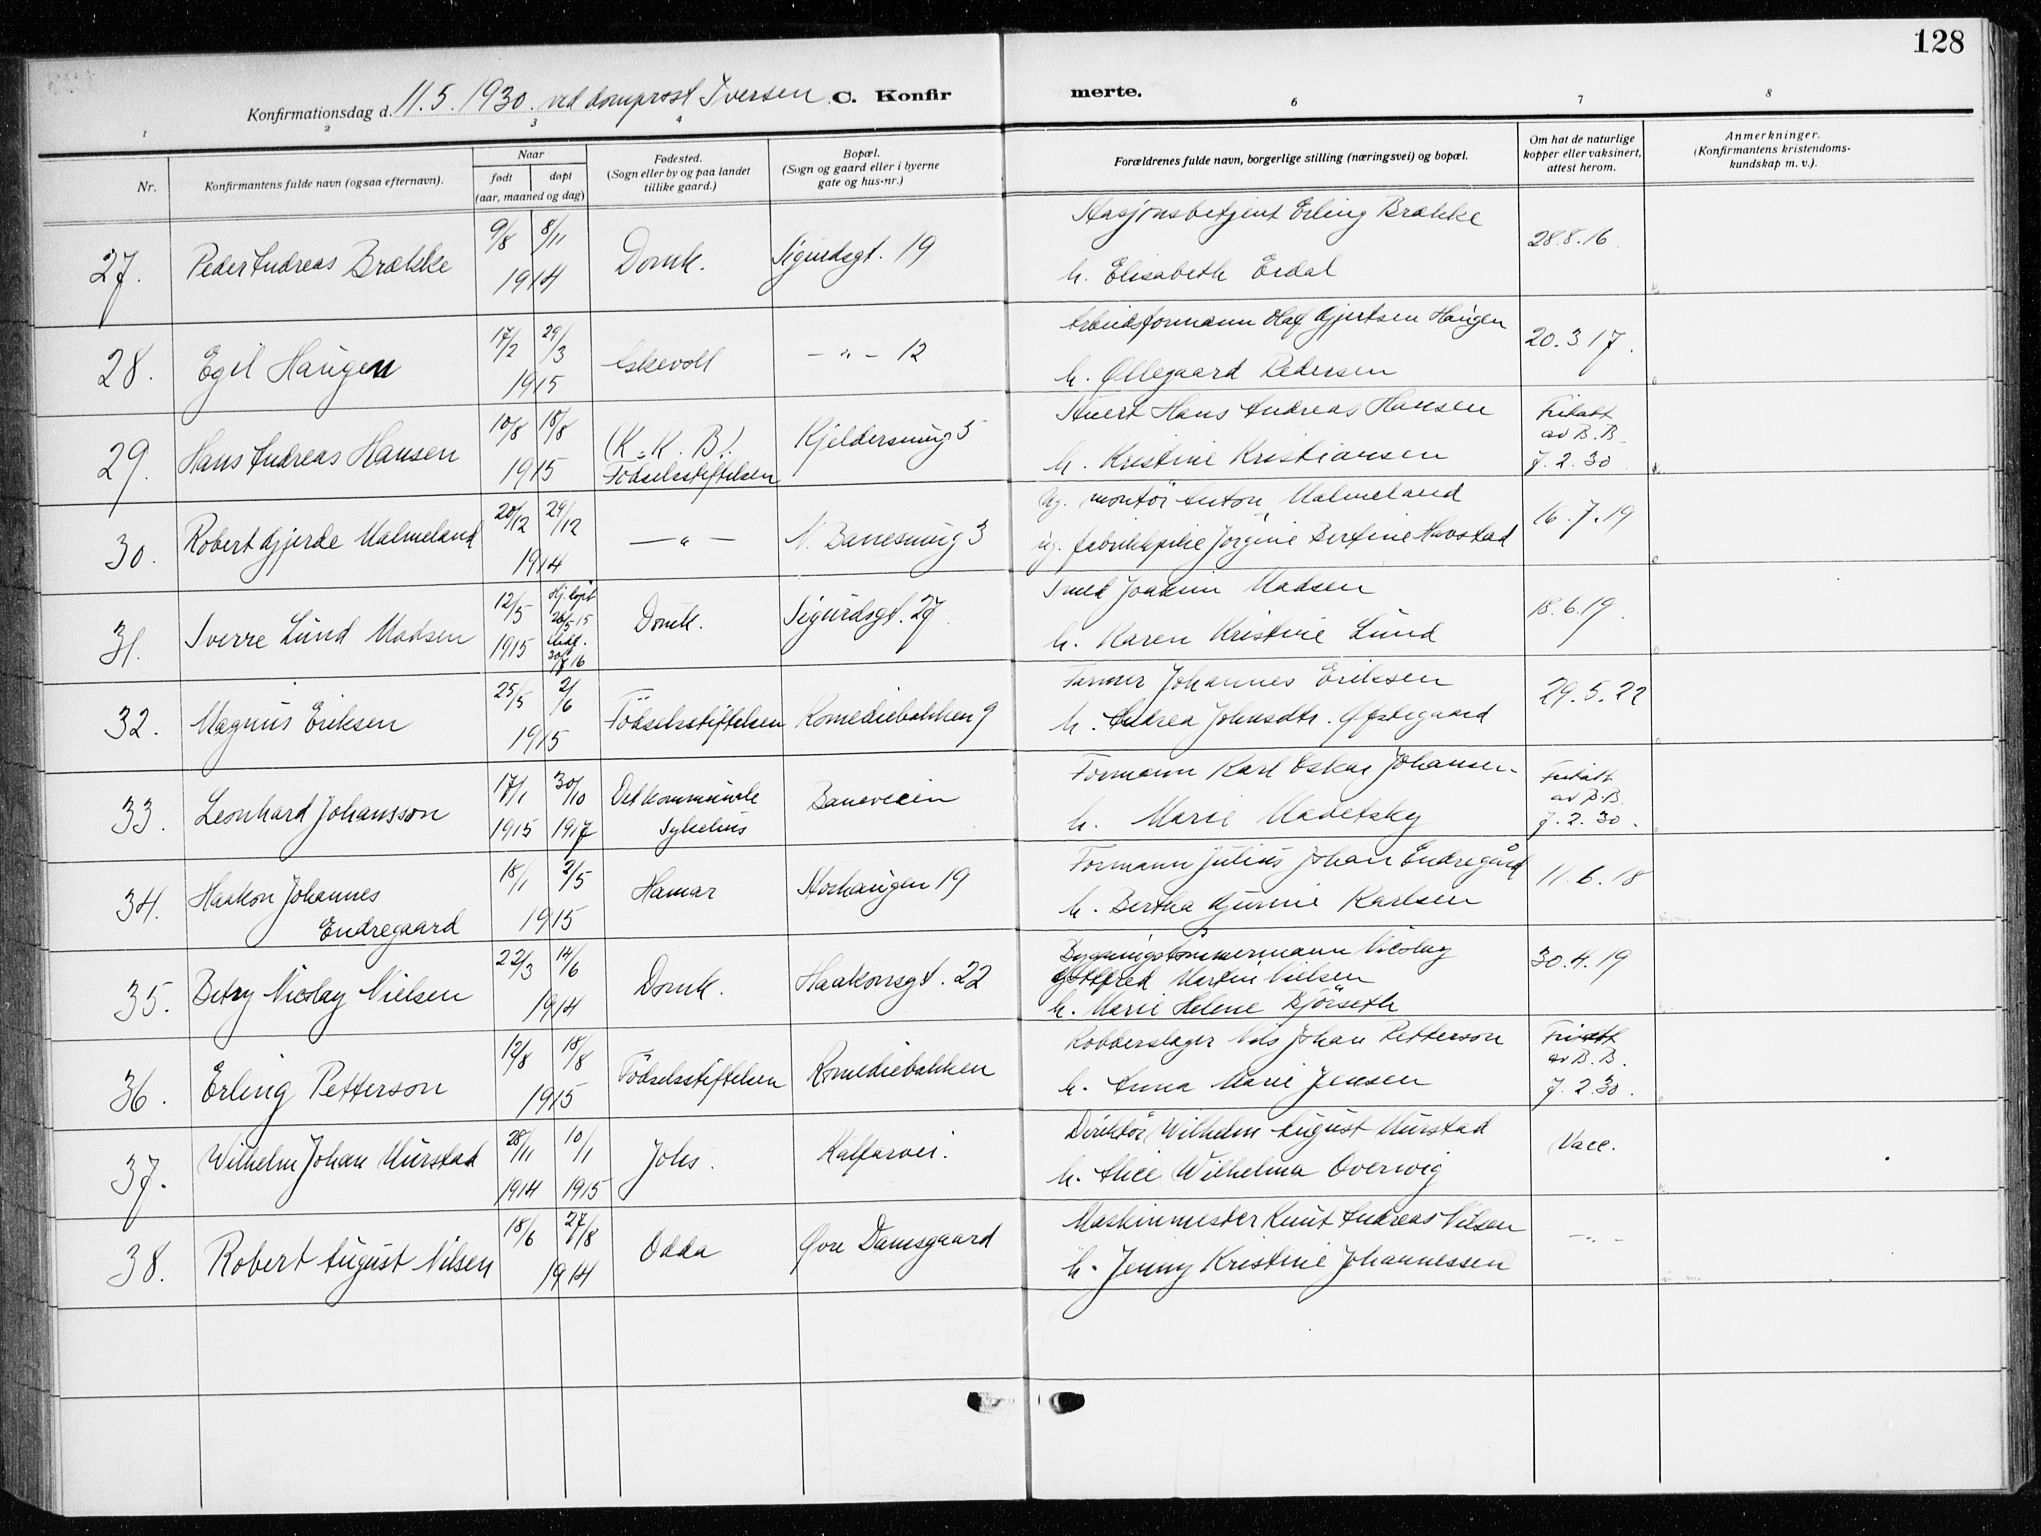 128
Konfirmationsdag d. 11.5.1930. ved domprost Iversen C. Konfirmerte.
1 2 3 4 6 7 8
Nr.
Konfirmantens fulde navn (ogsaa efternavn).
Naar
født døpt
(aar, maaned og dag)
Fødested.
(Sogn eller by og paa landet
tillike gaard.)
Bopæl.
(Sogn og gaard eller i byerne
gate og hus-nr.)
Forældrenes fulde navn, borgerlige stilling (næringsvei) og bopæl.
Om hat de naturlige
kopper eller vaksinert,
attest herom.
Anmerkninger.
(Konfirmantens kristendoms-
kundskap m. v.).
27. Peder Andreas Brække 9/8 8/11 1914 Domk. Sigurdsgt. 19
Stasjonsbetjent Erling Brække
h. Elisabeth Eidal
28.8.16.
28. Egil Haugen 17/2 29/3 1915 Askevoll -"- 12
Arbeidsformann Olaf Gjertsen Haugen
h. Øllegaard Pedersen
20.3.17.
29. Hans Andreas Hansen 10/8 18/8 1915 (K.K.B.). Fødselsstiftelsen Kjeldersmug 5
Hans Andreas Hansen
h. Kristine Kristiansen
Fritatt
av B.B.
7.2.30
30. Robert Gjerde Malmeland 20/12 29/12 1914 -"- N. Banesmug 3
Ug. montør Anton Malmeland
ug. fabrikkpike Jørgine Bertine Havstad
16.7.19
31. Sverre Lund Madsen 12/5 1915 Hj. døpt 26/5 15 Domk. Sigurdsgt. 27.
Smed Joakim Madsen
h. Karen Kristine Lund
18.6.19.
32. Magnus Eriksen 25/5 2/6 1915 Fødselsstiftelsen Komediebakken 9
Farmer Johannes Eriksen
h. Andrea Johnsdtr. Østegaard
29.5.22
33. Leonhard Johansson 17/1 1915 30/10 1917 Det kommunale Sykehus Baneveien
Formann Karl Oskar Johansen
h. Marie Madetsky
Fritatt
av B.B.
7.2.30.
34. Haakon Johannes
Endregaard 18/1 2/5 1915 Hamar Storhaugen 19
Formann Julius Johan Endregård
h. Bertha Gurine Karlsen
11.6.18
35. Betzy Nicolay Nielsen 22/3 14/6 1914 Domk. Haakonsgt. 22
Bygningstømmermann Nicolay
Gottfred Martin Nielsen
h. Marie Helene Bjørseth
30.4.19
36. Erling Petterson 12/8 18/8 1915 Fødselsstiftelsen Komediebakken
Kobberslager Nils Johan Petterson
h. Anna Marie Jensen
Fritatt
av B.B.
7.2.30.
37. Wilhelm Johan Murstad 28/11 1914 10/1 1915 Johs. Kalfarvei.
Direktør Wilhelm August Murstad
h. Alice Wilhelma Overwig
Vacc.
38. Robert August Nilsen 18/6 27/8 1914 Odda Øvre Damsgaard
Maskinmester Knut Andreas Nilsen
h. Jenny Kristine Johannessen
-"-